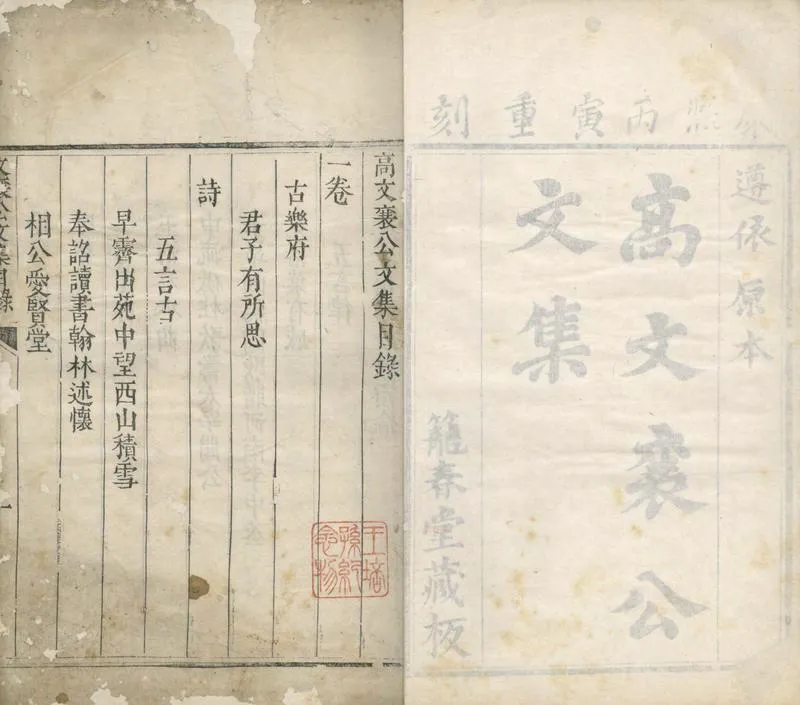 康熙丙寅重刻
遵依原本
高文襄公
文集
籠春堂藏板
高文襄公文集目錄
一卷
古樂府
君子有所思
詩
五言古
早霽出苑中望西山積雪
奉詔讀書翰林述懷
相公愛賢堂
文襄公文集目錄
一
王培
孫紀
念物